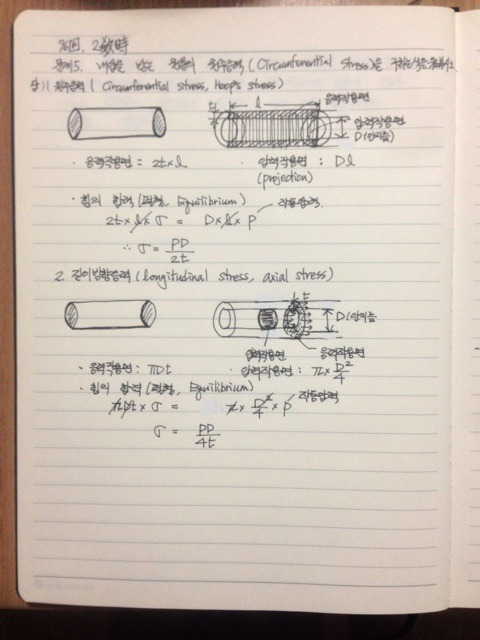 96回, 2敎時
문제5. 내압을 받는 원통의 원주응력(Circumferential Stress)을 구하는 식을 유도하시오.
답) 1. 원주응력 (Circumferential stress, Hoop stress)
t
l
응력작용면
압력작용면
D(안지름)
· 응력작용면 = 2t×l
· 압력작용면 : Dl
(projection)
· 힘의 합력(평형, Equilibrium)
2t×l×σ = D×l×P
작동압력
∴ σ = PD/2t
2. 길이방향응력 (longitudinal stress, axial stress)
t
D(안지름
압력작용면
응력작용면
· 응력작용면: πDt
· 압력작용면 : π×D²/4
· 힘의 합력(평형, Equilibrium)
πDt×σ = π×D²/4×P
작동압력
σ = PD/4t